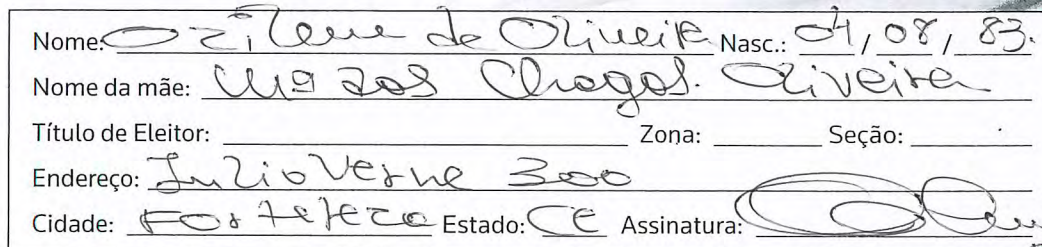 Nome: Ozilene de Oliveira Nasc.: 04/08/83.
Nome da mãe: Mª das Chagas. Oliveira
Título de Eleitor: Zona: Seção:
Endereço: Julio Verne 300
Cidade: Fortaleza Estado: CE Assinatura: